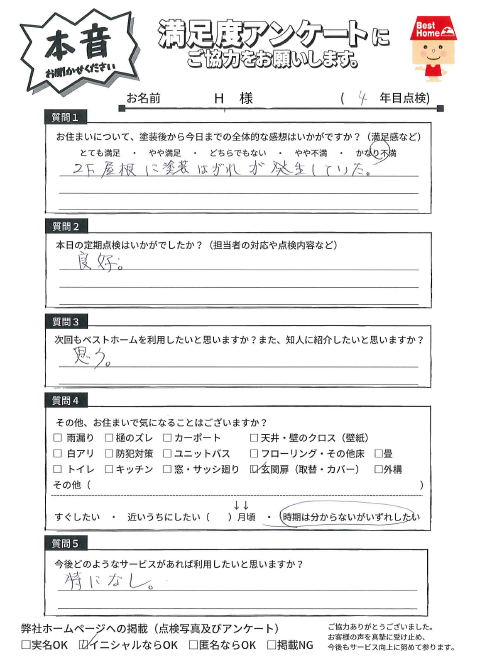 本音
お聞かせください
満足度アンケートに
ご協力をお願いします。
Best Home
お名前 H 様 ( 4 年目点検)
質問1
お住まいについて、塗装後から今日までの全体的な感想はいかがですか？（満足感など）
とても満足 ・ やや満足 ・ どちらでもない ・ やや不満 ・ かなり不満
2F屋根に塗装はがれが発生していた。
質問2
本日の定期点検はいかがでしたか？（担当者の対応や点検内容など）
良好。
質問3
次回もベストホームを利用したいと思いますか？また、知人に紹介したいと思いますか？
思う。
質問4
その他、お住まいで気になることはございますか？
□ 雨漏り □ 樋のズレ □ カーポート □ 天井・壁のクロス（壁紙）
□ 白アリ □ 防犯対策 □ ユニットバス □ フローリング・その他床 □畳
□ トイレ □ キッチン □ 窓・サッシ廻り ☑ 玄関扉（取替・カバー） □外構
その他（ ）
↓↓
すぐしたい ・ 近いうちにしたい（ ）月頃 ・ 時期は分からないがいずれしたい
質問5
今後どのようなサービスがあれば利用したいと思いますか？
特になし。
弊社ホームページへの掲載（点検写真及びアンケート）
□実名OK ☑イニシャルならOK □匿名ならOK □掲載NG
ご協力ありがとうございました。
お客様の声を真摯に受け止め、
今後もサービス向上に努めて参ります。